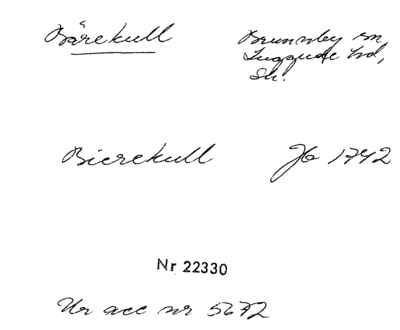 Bärekull
Brunnby sn
Luggude hd,
Sk.
Bierekull Jb 1742
Nr 22330
Ur acc nr 5672